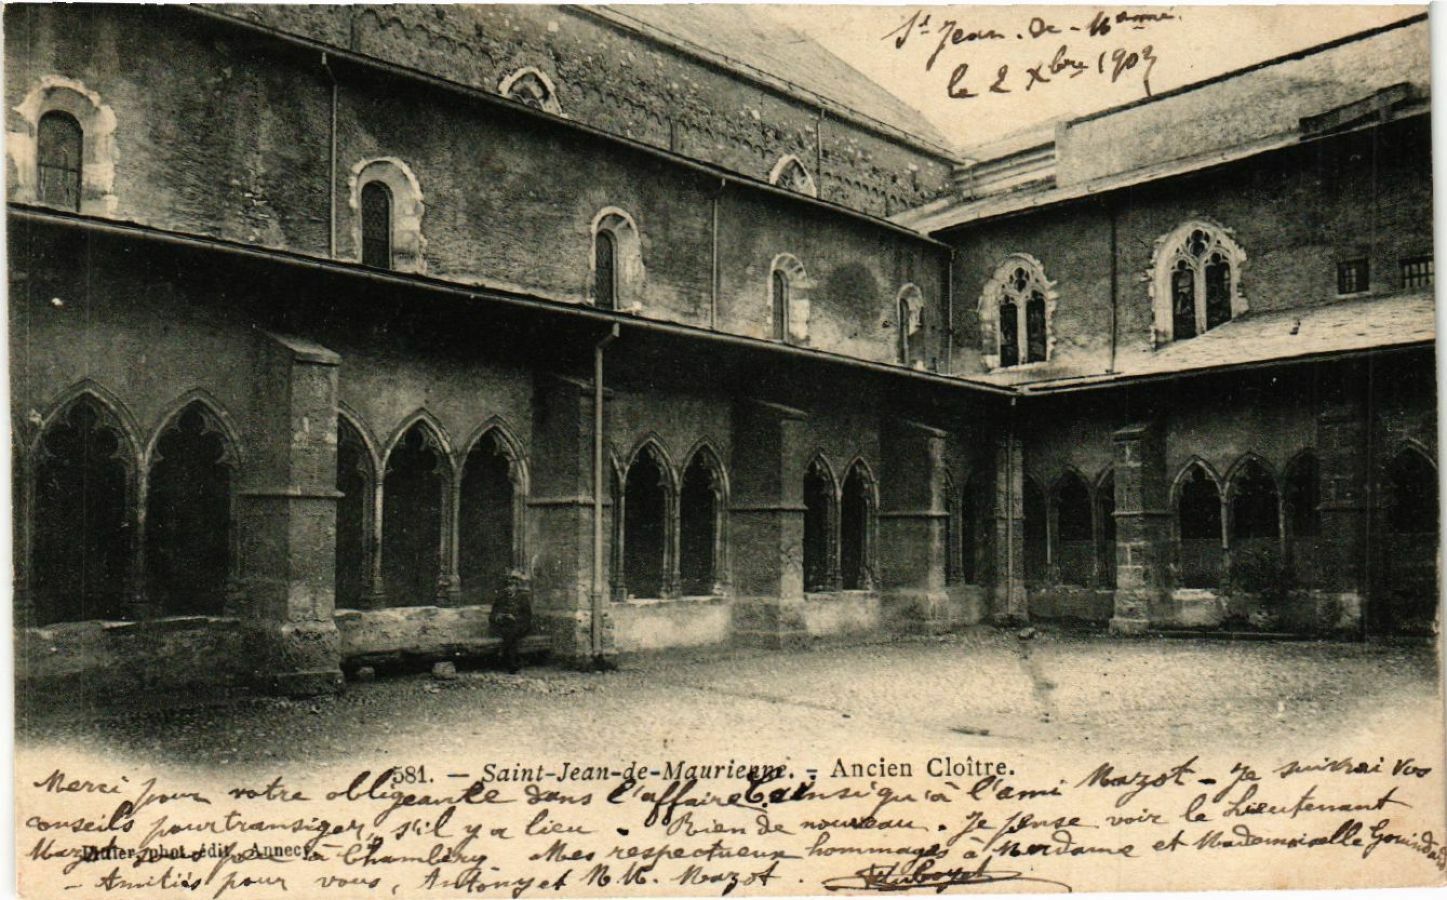 St Jean-de-Mne
le 2 Xbre 1903
581. — Saint-Jean-de-Maurienne. - Ancien Cloître.
Merci pour votre obligeance dans l'affaire ainsi qu'à l'ami Mazot - Je suivrai vos
conseils pour transiger, s'il y a lieu. Rien de nouveau. Je pense voir le Lieutenant
Mazot à Chambéry. Mes respectueux hommages à Madame et Mademoiselle
Pittier, phot.-édit., Annecy
- Amitiés pour vous, Antony et M. Mazot.